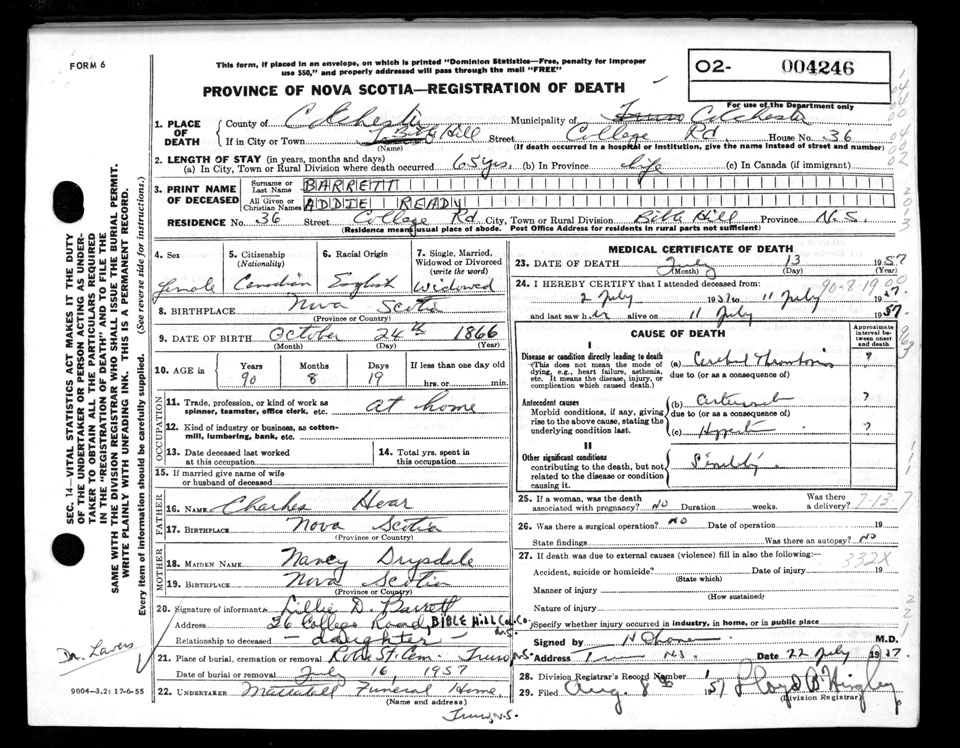 FORM 6
This form, if placed in an envelope, on which is printed "Dominion Statistics—Free, penalty for improper
use $50," and properly addressed will pass through the mail "FREE"
PROVINCE OF NOVA SCOTIA—REGISTRATION OF DEATH
O2- 004246
For use of the Department only
1. PLACE OF DEATH
County of Colchester Municipality of Truro Colchester
If in City or Town Bible Hill Street College Rd House No. 36
(Name) (If death occurred in a hospital or institution, give the name instead of street and number)
2. LENGTH OF STAY (in years, months and days)
(a) In City, Town or Rural Division where death occurred 65 yrs. (b) In Province life (c) In Canada (if immigrant)
3. PRINT NAME OF DECEASED
Surname or Last Name BARRETT
All Given or Christian Names ADDIE READY
RESIDENCE No. 36 Street College Rd City, Town or Rural Division Bible Hill Province N.S.
(Residence means usual place of abode. Post Office Address for residents in rural parts not sufficient)
4. Sex female
5. Citizenship (Nationality) Canadian
6. Racial Origin English
7. Single, Married, Widowed or Divorced (write the word) Widowed
8. BIRTHPLACE Nova Scotia
(Province or Country)
9. DATE OF BIRTH October 24th 1866
(Month) (Day) (Year)
10. AGE in Years 90 Months 8 Days 19 If less than one day old
hrs. or min.
OCCUPATION
11. Trade, profession, or kind of work as spinner, teamster, office clerk, etc. at home
12. Kind of industry or business, as cotton-mill, lumbering, bank, etc.
13. Date deceased last worked at this occupation
14. Total yrs. spent in this occupation
15. If married give name of wife or husband of deceased
FATHER
16. NAME Charles Hear
17. BIRTHPLACE Nova Scotia
(Province or Country)
MOTHER
18. MAIDEN NAME Nancy Drysdale
19. BIRTHPLACE Nova Scotia
(Province or Country)
20. Signature of informant Lillie D. Barrett
Address 36 College Road, BIBLE HILL Col. Co. N.S.
Relationship to deceased — daughter —
21. Place of burial, cremation or removal Robie St. Cem. Truro N.S.
Date of burial or removal July 16, 1957
22. UNDERTAKER Mattatall Funeral Home,
(Name and address)
Truro, N.S.
MEDICAL CERTIFICATE OF DEATH
23. DATE OF DEATH July 13 1957
(Month) (Day) (Year)
24. I HEREBY CERTIFY that I attended deceased from:
90-8-19 00
2 July 1957 to 11 July 1957
and last saw her alive on 11 July 1957.
CAUSE OF DEATH
Approximate interval between onset and death
I
Disease or condition directly leading to death (a) Cerebral Thrombosis ?
(This does not mean the mode of dying, e.g., heart failure, asthenia, etc. It means the disease, injury, or complication which caused death.)
due to (or as a consequence of)
Antecedent causes (b) ?
Morbid conditions, if any, giving rise to the above cause, stating the underlying condition last.
due to (or as a consequence of)
(c) ?
II
Other significant conditions Senility
contributing to the death, but not related to the disease or condition causing it.
25. If a woman, was the death associated with pregnancy? NO Duration weeks. Was there a delivery?
7-13-7
26. Was there a surgical operation? NO Date of operation 19
State findings Was there an autopsy? NO
27. If death was due to external causes (violence) fill in also the following:—
332X
Accident, suicide or homicide? Date of injury 19
(State which)
Manner of injury
(How sustained)
Nature of injury
Specify whether injury occurred in industry, in home, or in public place
Signed by M.D.
Address Truro N.S. Date 22 July 1957.
28. Division Registrar's Record Number
29. Filed Aug. 8th 1957 Lloyd
(Division Registrar)
Dr. Lavers
9004-3.2: 17-6-55
SEC. 14—VITAL STATISTICS ACT MAKES IT THE DUTY
OF THE UNDERTAKER OR PERSON ACTING AS UNDER-
TAKER TO OBTAIN ALL THE PARTICULARS REQUIRED
IN THE "REGISTRATION OF DEATH" AND TO FILE THE
SAME WITH THE DIVISION REGISTRAR WHO SHALL ISSUE THE BURIAL PERMIT.
WRITE PLAINLY WITH UNFADING INK. THIS IS A PERMANENT RECORD.
Every item of information should be carefully supplied. (See reverse side for instructions.)